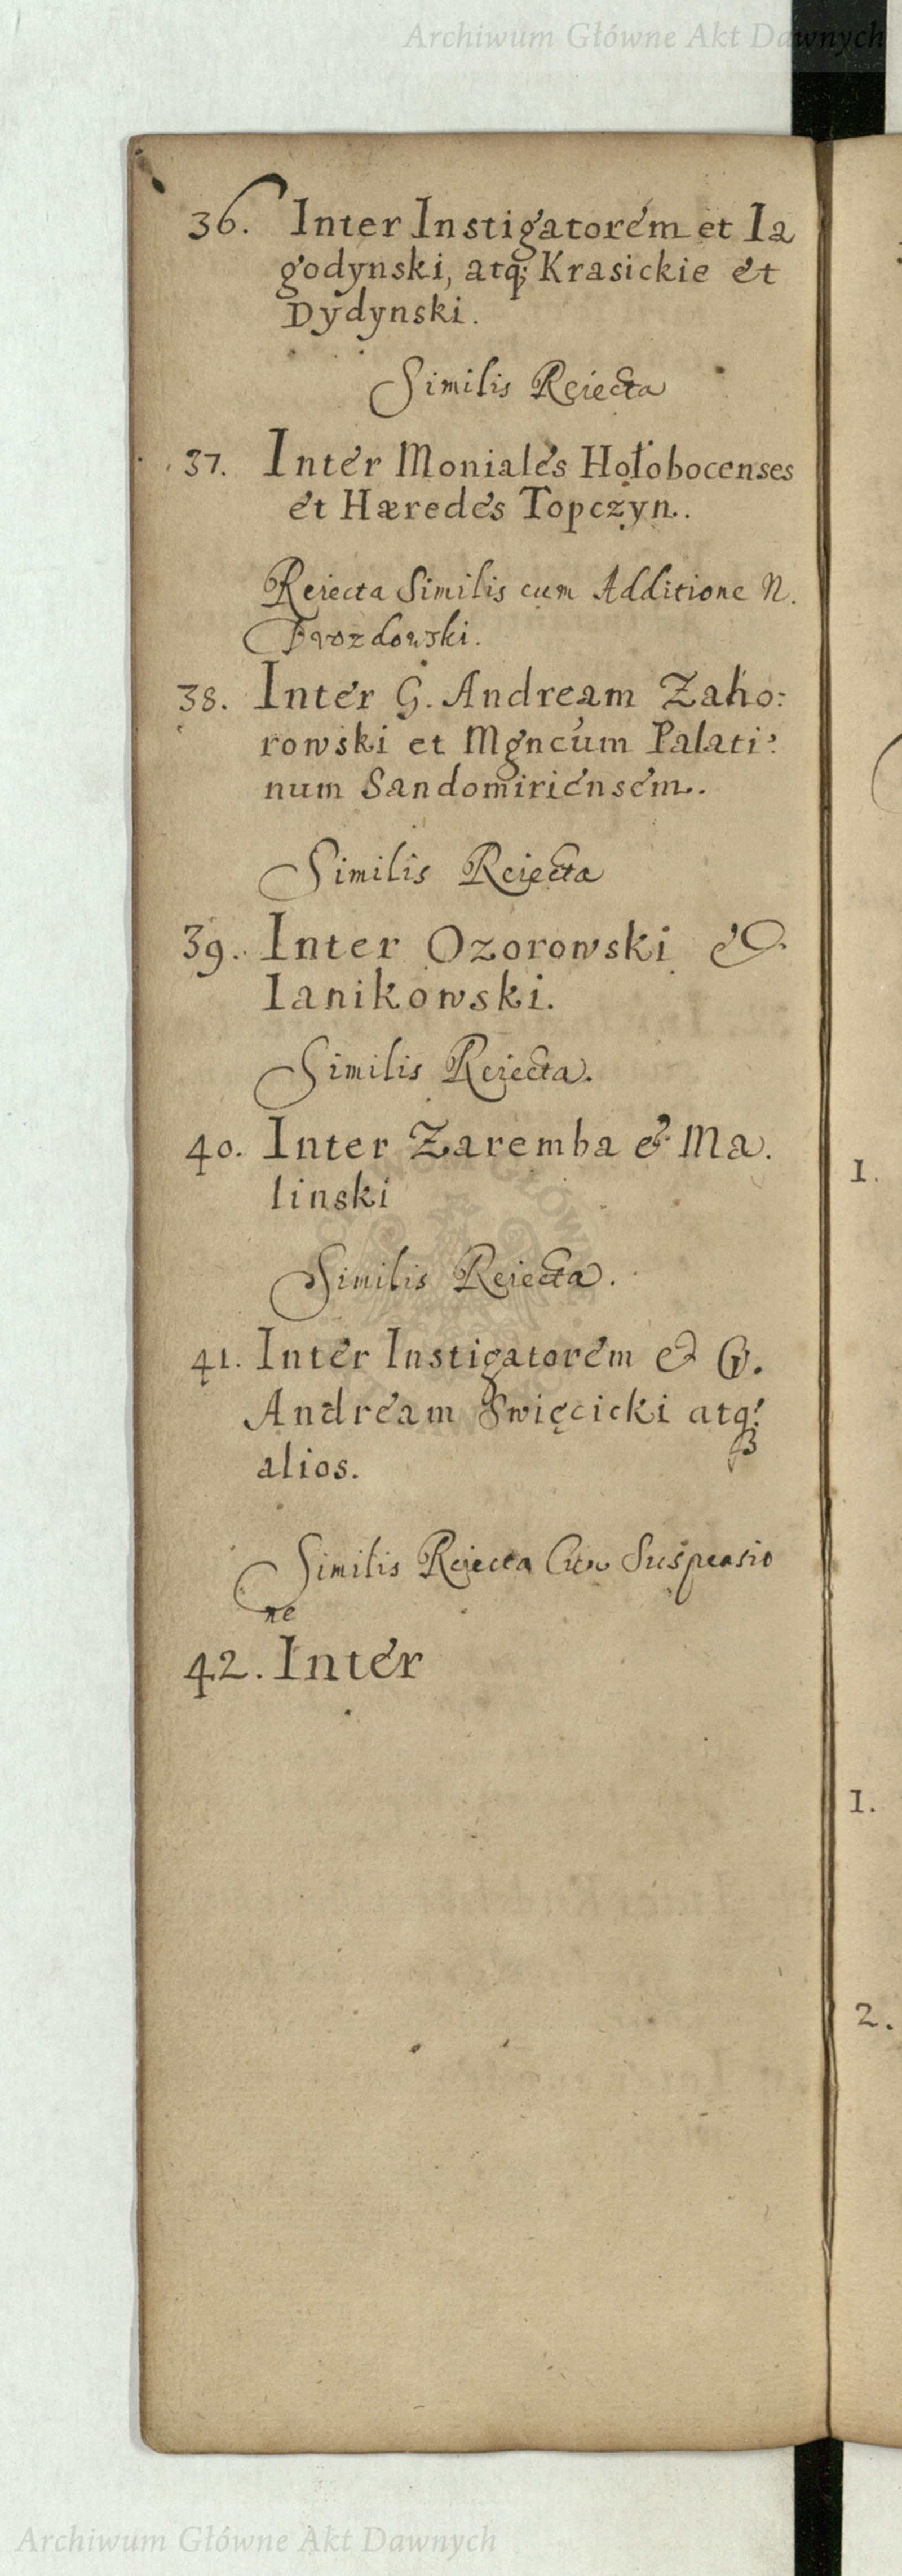 Archiwum Główne Akt Dawnych
36. Inter Instigatorem et Ia
godynski, atq; Krasickie et
Dydynski.
Similis Reiecta
37. Inter Moniales Hołobocenses
et Hæredes Topczyn.
Reiecta Similis cum Additione N.
38. Inter G. Andream Zaho:
rowski et Mgncum Palati:
num Sandomiriensem.
Similis Reiecta
39. Inter Ozorowski &
Ianikowski.
Similis Reiecta.
40. Inter Zaremba & Ma.
linski
Similis Reiecta.
41. Inter Instigatorem & G.
Andream Swięcicki atq;
alios.
Similis Reiecta Cum Suspensio
ne
42. Inter
1.
1.
2.
Archiwum Główne Akt Dawnych